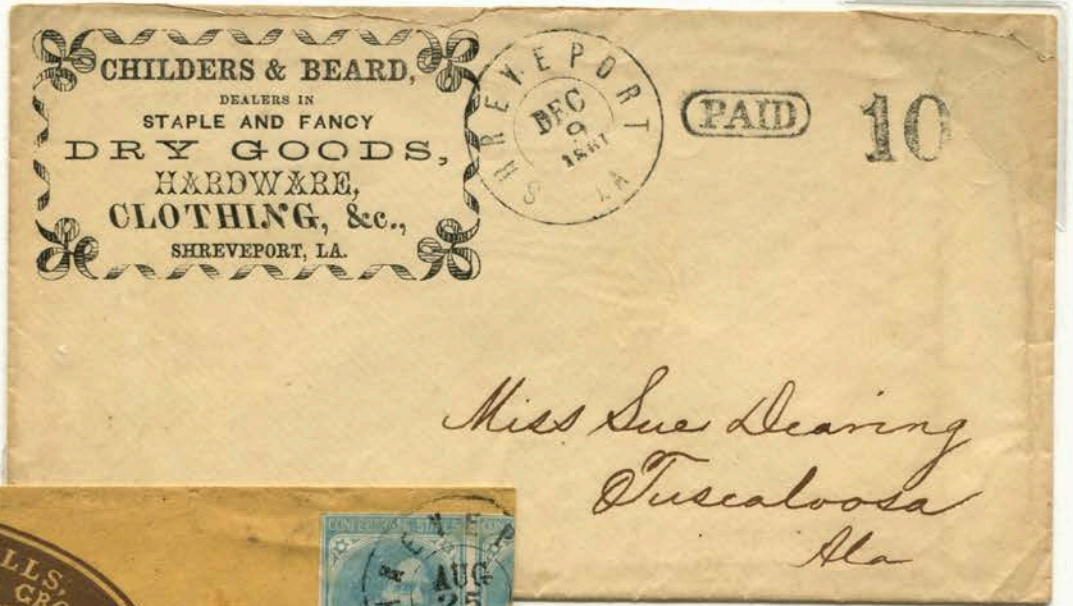 CHILDERS & BEARD,
DEALERS IN
STAPLE AND FANCY
DRY GOODS,
HARDWARE,
CLOTHING, &c.,
SHREVEPORT, LA.
SHREVEPORT LA
DEC
9
1861
PAID
10
Miss Sue Dearing
Tuscaloosa
Ala
LLS,
GRO
CONFEDERATE STATES
CON
EVEP
AUG
25